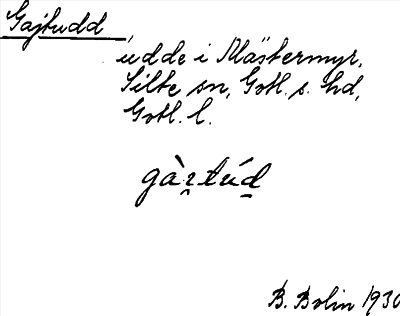 Gajtudd
udde i Mästermyr,
Silte sn, Gotl. s. hd,
Gotl. l.
gàrtúd
B. Bolin 1930